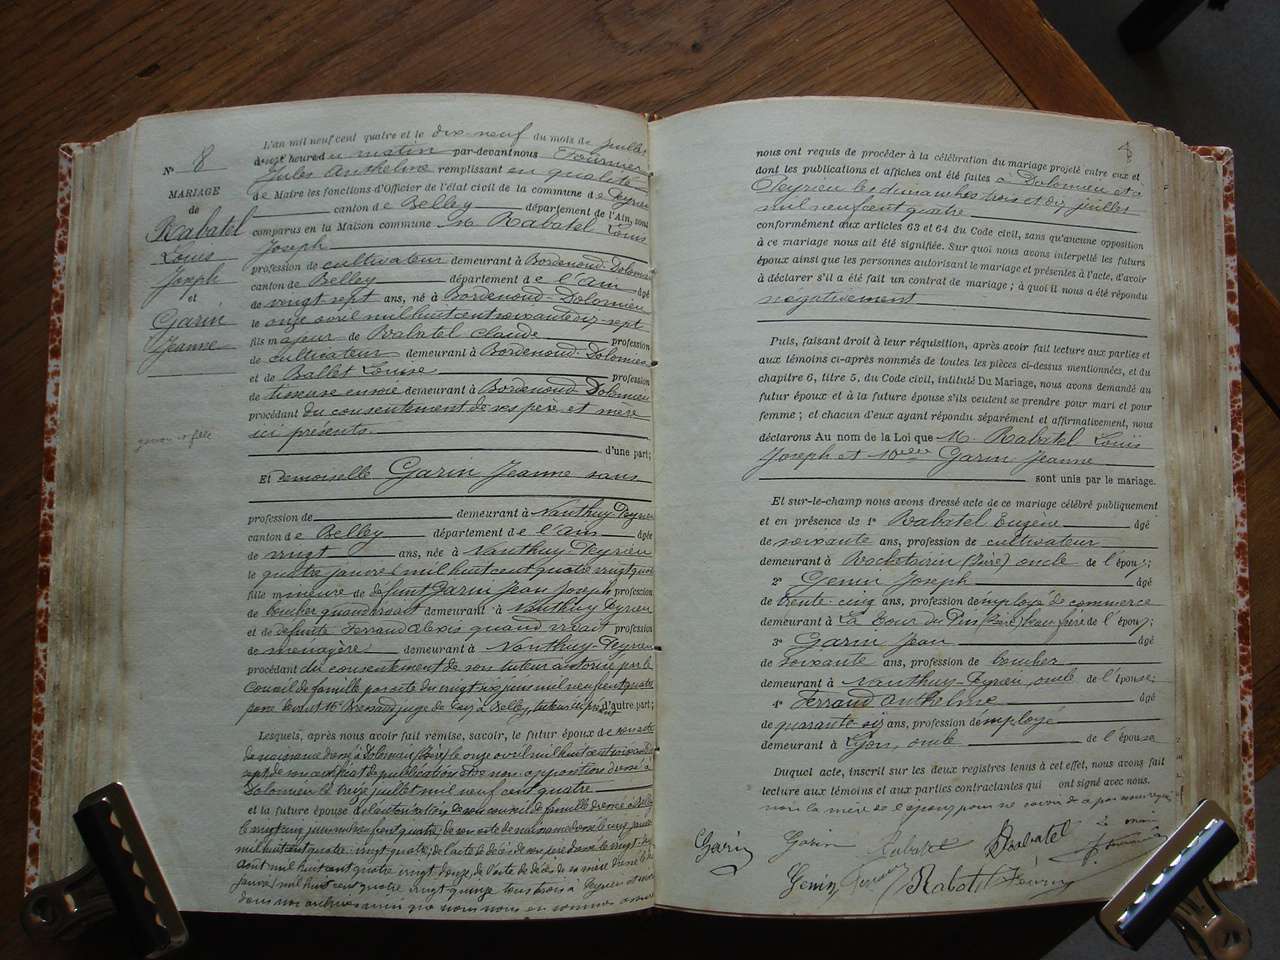 N° 8
MARIAGE
de
Rabatel
Louis
Joseph
et
Garin
Jeanne
L'an mil neuf cent quatre et le dix-neuf du mois de juillet
heures du matin par-devant nous Fournier
Jules Anthelme remplissant en qualité
de Maire les fonctions d'Officier de l'état civil de la commune de Peyrieu
canton de Belley département de l'Ain, sont
comparus en la Maison commune M. Rabatel Louis
Joseph
profession de cultivateur demeurant à Bordenoud-Dolomieu
canton de Belley département de l'Ain âgé
de vingt sept ans, né à Bordenoud-Dolomieu
le onze avril mil huit cent soixante dix-sept
fils majeur de Rabatel Claude profession
de cultivateur demeurant à Bordenoud-Dolomieu
et de Ballet Louise profession
de tisseuse en soie demeurant à Bordenoud Dolomieu
procédant du consentement de ses père et mère
ici présents.
d'une part;
garçon et fille
Et demoiselle Garin Jeanne sans
profession de demeurant à Nanthuy-Peyrieu
canton de Belley département de l'Ain âgée
de vingt ans, née à Nanthuy-Peyrieu
le quatre janvier mil huit cent quatre vingt quatre
fille mineure de défunt Garin Jean Joseph profession
de boucher quand vivait demeurant à Nanthuy Peyrieu
et de défunte Ferraud Alexis quand vivait profession
de ménagère demeurant à Nanthuy-Peyrieu
procédant du consentement de son tuteur autorisé par le
Conseil de famille par acte du vingt six juin mil neuf cent quatre
passé devant Mr juge de paix à Belley, tuteur ici présent d'autre part;
Lesquels, après nous avoir fait remise, savoir, le futur époux de son acte
de naissance dressé à Dolomieu (Isère) le onze avril mil huit cent soixante dix
sept de son certificat de publication et de non opposition dressé à
Dolomieu le treize juillet mil neuf cent quatre
et la future épouse de l'autorisation de son conseil de famille dressée à Belley
le vingt six juin mil neuf cent quatre, de son acte de naissance dressé le cinq janvier
mil huit cent quatre-vingt quatre; de l'acte de décès de son père dressé le vingt-
août mil huit cent quatre vingt douze, de l'acte de décès de sa mère dressé le
janvier mil huit cent quatre vingt quinze tous trois à Peyrieu et
dans nos archives ainsi que nous nous en sommes assuré
8
nous ont requis de procéder à la célébration du mariage projeté entre eux et
dont les publications et affiches ont été faites à Dolomieu et à
Peyrieu les dimanches trois et dix juillet
mil neuf cent quatre
conformément aux articles 63 et 64 du Code civil, sans qu'aucune opposition
à ce mariage nous ait été signifiée. Sur quoi nous avons interpellé les futurs
époux ainsi que les personnes autorisant le mariage et présentes à l'acte, d'avoir
à déclarer s'il a été fait un contrat de mariage; à quoi il nous a été répondu
négativement
Puis, faisant droit à leur réquisition, après avoir fait lecture aux parties et
aux témoins ci-après nommés de toutes les pièces ci-dessus mentionnées, et du
chapitre 6, titre 5, du Code civil, intitulé Du Mariage, nous avons demandé au
futur époux et à la future épouse s'ils veulent se prendre pour mari et pour
femme; et chacun d'eux ayant répondu séparément et affirmativement, nous
déclarons Au nom de la Loi que M. Rabatel Louis
Joseph et Melle Garin Jeanne
sont unis par le mariage.
Et sur-le-champ nous avons dressé acte de ce mariage célébré publiquement
et en présence de 1° Rabatel Eugène âgé
de soixante ans, profession de cultivateur
demeurant à Rochetoirin (Isère) oncle de l'époux;
2° Genin Joseph âgé
de trente-cinq ans, profession de employé de commerce
demeurant à La Tour du Pin (Isère) beau frère de l'époux;
3° Garin Jean âgé
de soixante ans, profession de boucher
demeurant à Nanthuy-Peyrieu, oncle de l'épouse;
4° Ferraud Anthelme âgé
de quarante six ans, profession de employé
demeurant à Lyon, oncle de l'épouse
Duquel acte, inscrit sur les deux registres tenus à cet effet, nous avons fait
lecture aux témoins et aux parties contractantes qui ont signé avec nous.
non la mère de l'époux pour ne savoir de ce par nous requise
Le maire
Garin Garin Rabatel Rabatel
Genin Ferraud Rabatel